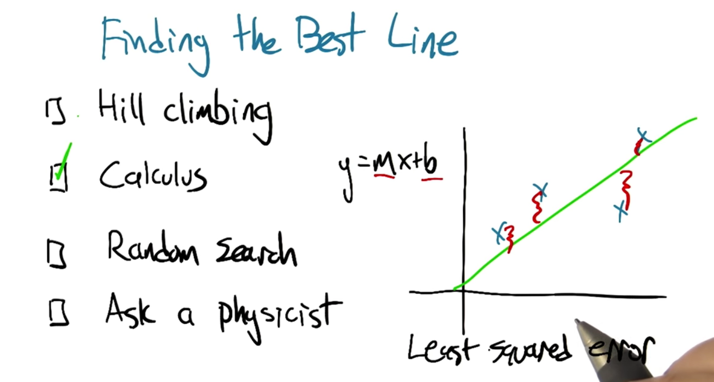 Finding the Best Line
Hill climbing
Calculus
Random search
Ask a physicist
y=mx+b
x
x
x
x
Least squared error